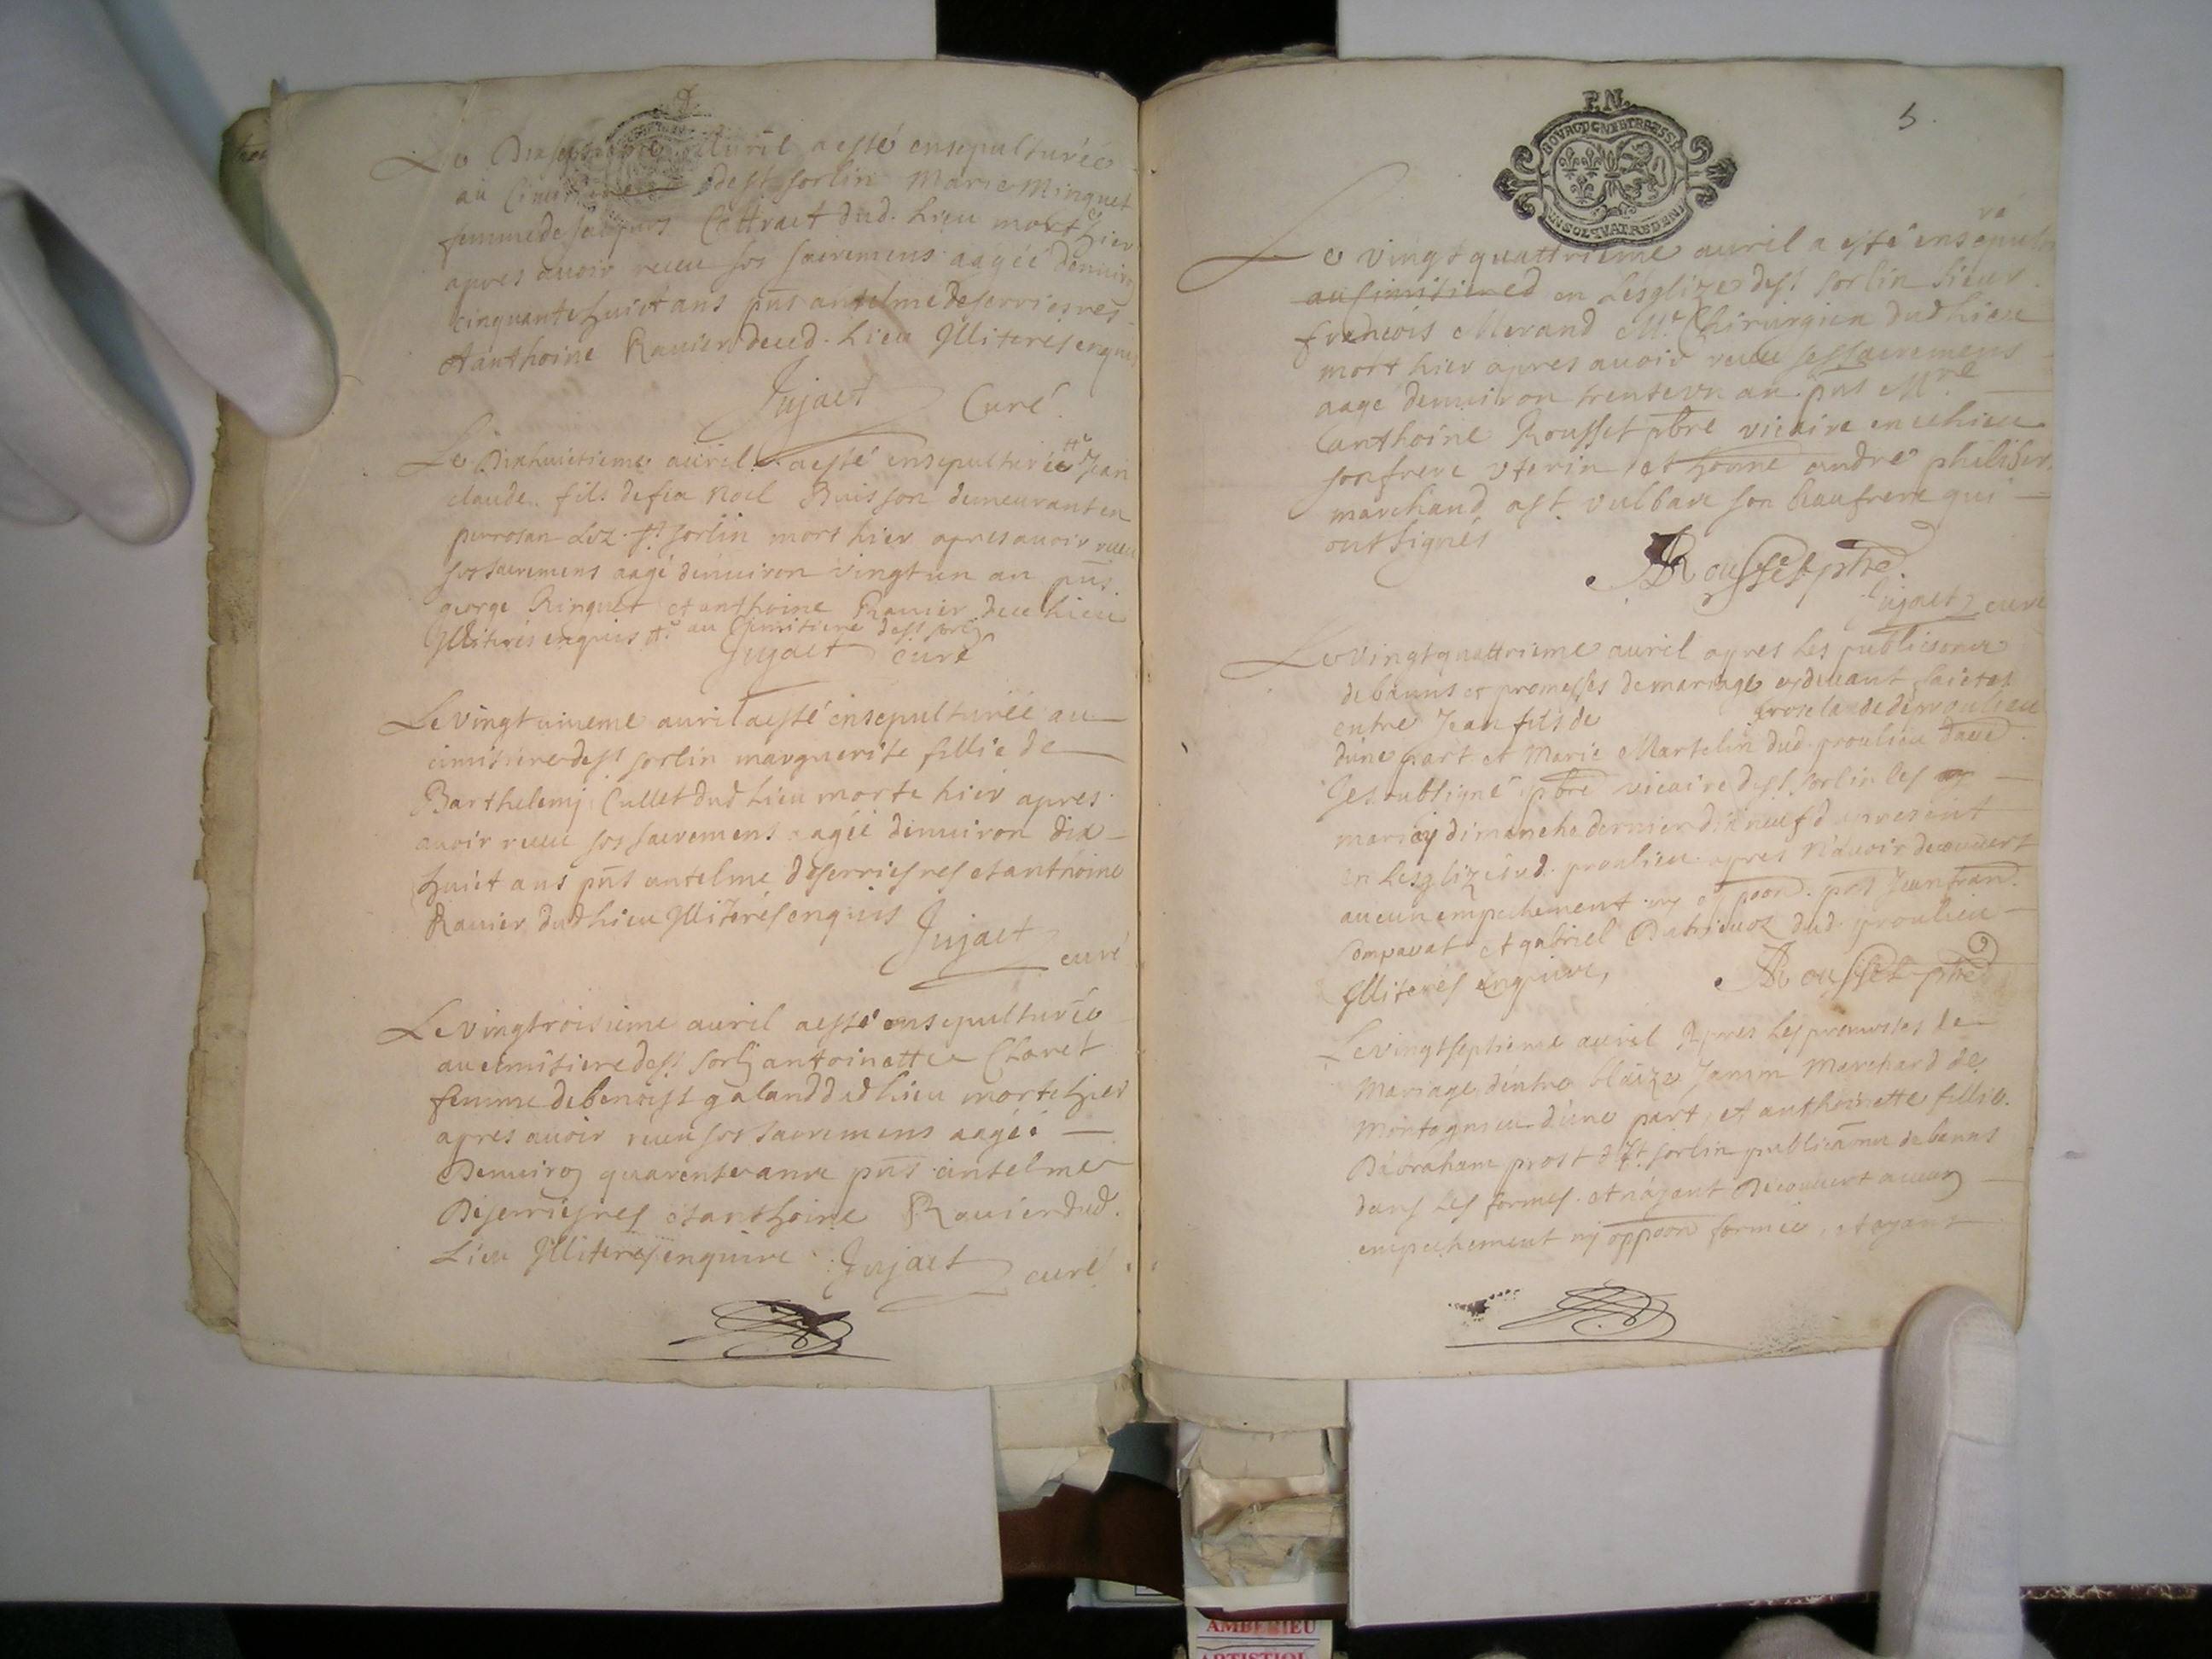 Le Dixseptieme Auril a esté ensepulturéé
au Cimitiere de st sorlin Marie Minguet
femme de Jacques Cottraet dud. lieu mort hier
apres auoir receu ses sacremens aagéé denuiron
cinquante huict ans pñs antelme deserriesres
et anthoine Rauier deud. lieu Illiterés enquis
Jujaet Curé
Le Dixhuictieme auril a esté ensepulturéé Jean
claude fils de feu Noel Buisson demeurant en
perrosan Lez st sorlin mort hier apres auoir receu
ses sacremens aagé denuiron vingt un an pñs
george Ringuet et anthoine Rauier de ce lieu
Illiterés enquis au Cimitiere de st sorlin
Jujaet curé
Le vingt unieme auril a esté ensepulturéé au
cimitiere de st sorlin marguerite fillie de
Barthelemy Cullet dud lieu morte hier apres
auoir receu ses sacremens aagéé denuiron dix
huict ans pñs antelme deserriesres et anthoine
Rauier dud lieu Illiterés enquis
Jujaet
curé
Le vingtroisieme auril a esté ensepulturéé
au cimitiere de st sorlin antoinette Claret
femme de benoist galand dud lieu morte hier
apres auoir receu ses sacremens aagéé
Denuiron quarente ans pñs antelme
Deserriesres et anthoine Rauier dud.
Lieu Illiterés enquire Jujaet curé
P.N.
BOVRGOGNE ET BRESSE
VN SOL QVATRE DEN
5
Le vingt quattrieme auril a esté ensepultu
ra
au Cimitiere en Lesglize de st sorlin sieur
francois Merand Mre Chirurgien dud lieu
mort hier apres auoir receu ses sacremens
aage denuiron trente vn an pñs Mre
anthoine Rousset pbre vicaire en ce lieu
son frere vterin et honne andre
marchand a st vulbas son beaufrere qui
ont signés
Rousset pbre
Jujaet curé
Le vingt quattrieme auril apres les publicaons
de banns et promesses de mariage cy deuant faictes
entre Jean fils de de proulieu
dune part et Marie Martelin dud. proulieu
Je soubsigné pbre vicaire de st sorlin les ay
dimanche dernier dix neufd
en Lesglize dud. proulieu apres n'auoir decouuert
aucun empechement ny oppoon. Jean fran.
et gabriel dud. proulieu
Illiterés enquire,
Rousset pbre
Le vingt septieme auril Apres les promesses de
Mariage dentre blaize Jamm Marchand de
Montagnieu dune part, et anthoinette fillie
Dabraham prost de st sorlin publicaons de banns
dans les formes et n'ayant decouuert aucun
empechement ny oppoon formée, et ayant
AMBERIEU